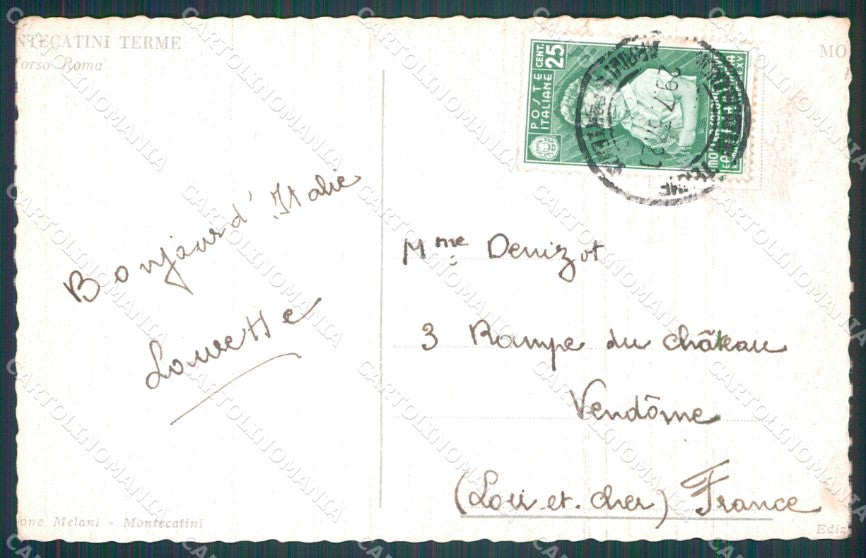 NTECATINI TERME
orso Roma
MO
POSTE ITALIANE
CENT. 25
Bonjour d'Italie
Laurette
Mme Denizot
3 Rampe du château
Vendôme
(Loir.et.cher) France
one Melani - Montecatini
Ediz
CARTOLINOMANIA